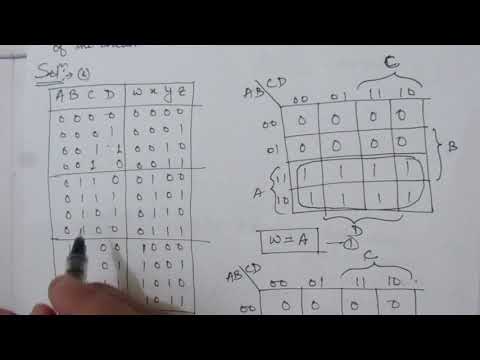 of the circuit
Soln:→ (a)
A B C D W X Y Z
0 0 0 0 0 0 0 0
0 0 0 1 0 0 0 1
0 0 1 1 0 0 1 0
0 0 1 0 0 0 1 1
0 1 1 0 0 1 0 0
0 1 1 1 0 1 0 1
0 1 0 1 0 1 1 0
0 1 0 0 0 1 1 1
0 0 1 0 0 0
0 1 1 0 0 1
1 0 1 0
1 0 1 1
C
AB CD
00 01 11 10
00 0 0 0 0
01 0 0 0 0
B
A
11 1 1 1 1
10 1 1 1 1
D
W = A → ①
C
AB CD
00 01 11 10
00 0 0 0 0